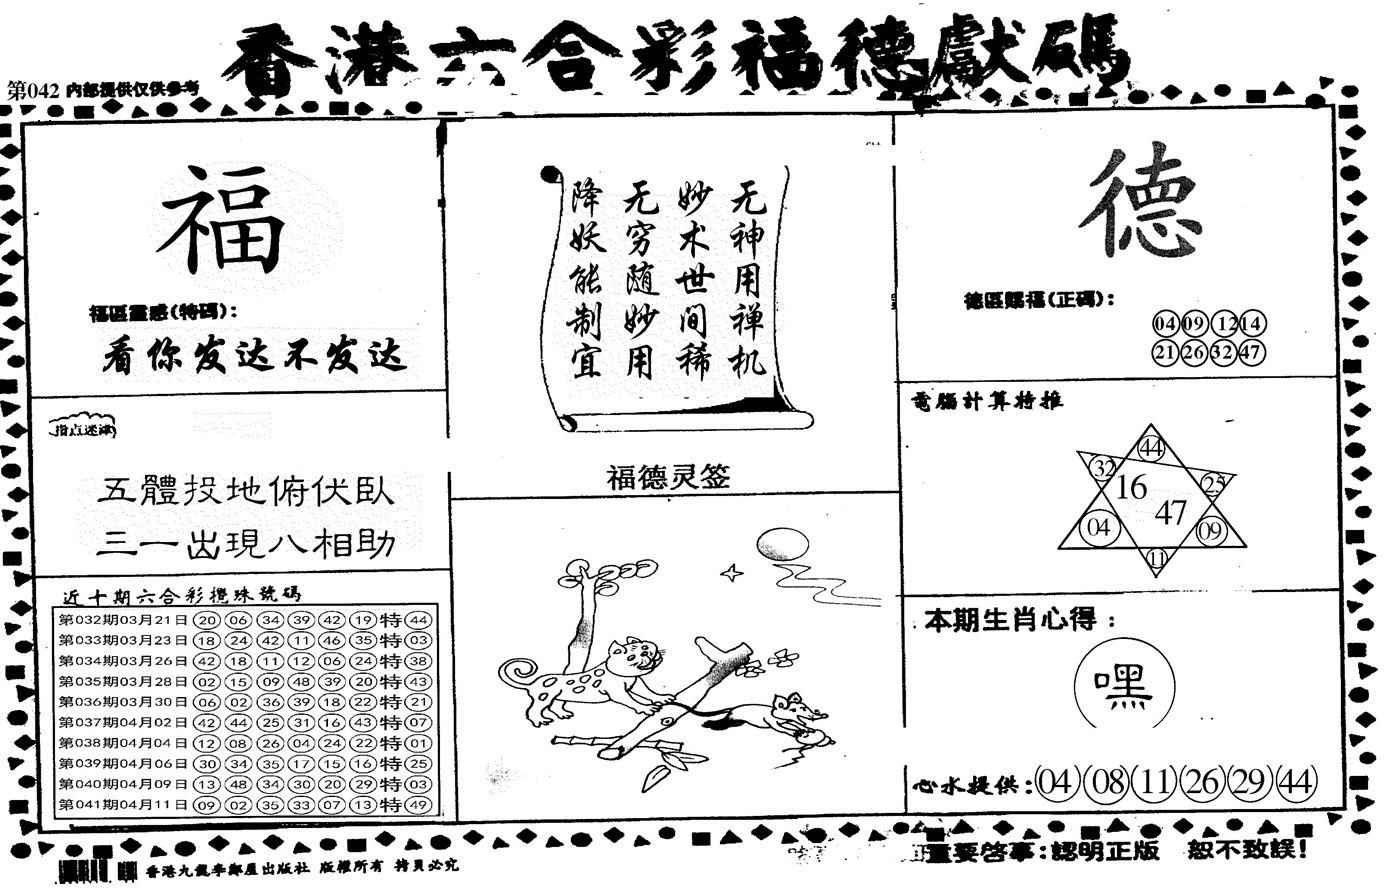 香港六合彩福德獻碼
第042 内部提供仅供参考
福
福區靈感(特碼):
看你发达不发达
指点迷津
五體投地俯伏臥
三一出現八相助
近十期六合彩攪珠號碼
第032期03月21日 20 06 34 39 42 19 特 44
第033期03月23日 18 24 42 11 46 35 特 03
第034期03月26日 42 18 11 12 06 24 特 38
第035期03月28日 02 15 09 48 39 20 特 43
第036期03月30日 06 02 36 39 18 22 特 21
第037期04月02日 42 44 25 31 16 43 特 07
第038期04月04日 12 08 26 04 24 22 特 01
第039期04月06日 30 34 35 17 15 16 特 25
第040期04月09日 13 48 34 30 20 29 特 03
第041期04月11日 09 02 35 33 07 13 特 49
无神用禅机
妙术世间稀
无穷随妙用
降妖能制宜
福德灵签
德
德區賜福(正碼):
04 09 12 14
21 26 32 47
電腦計算特推
44
32
25
16
47
04
09
11
本期生肖心得:
嘿
心水提供:04 08 11 26 29 44
香港九龍李鄭屋出版社 版權所有 拷貝必究
重要啓事:認明正版 恕不致誤!